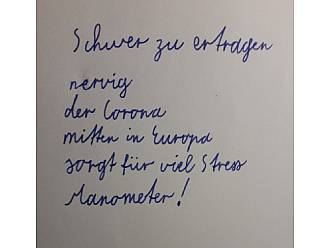 Schwer zu ertragen
nervig
der Corona
mitten in Europa
sorgt für viel Stress
Manometer!